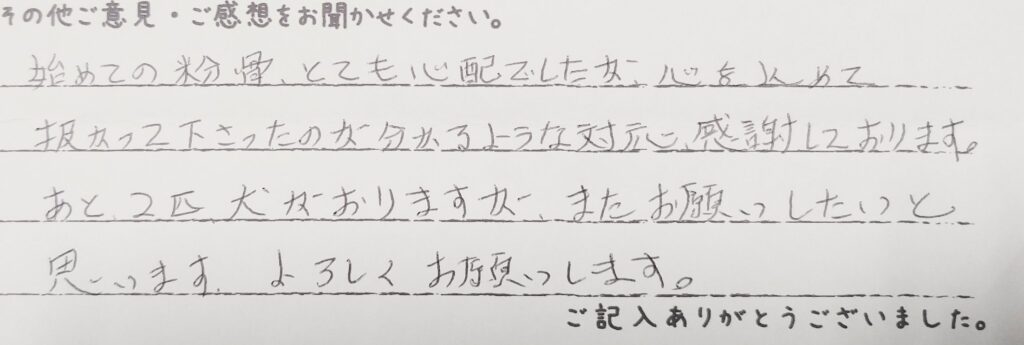 その他ご意見・ご感想をお聞かせください。
始めての粉骨、とても心配でしたが、心を込めて
扱かって下さったのが分かるような対応、感謝しております。
あと、2匹、犬がおりますが、またお願いしたいと
思います。よろしくお願いします。
ご記入ありがとうございました。